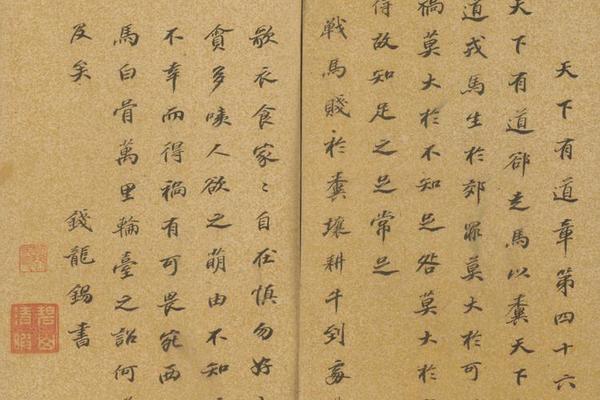 天下有道章第四十六
天下有道郤走馬以糞天下
道戎馬生於郊罪莫大於可
禍莫大於不知足咎莫大於
得故知足之足常足
戦馬賤於糞壤耕牛到處
歌衣食家〻自在慎勿好
貪多人欲之萌由不知
不幸而得禍有可畏宛西
馬白骨萬里輪臺之詔何
及矣
錢龍錫書